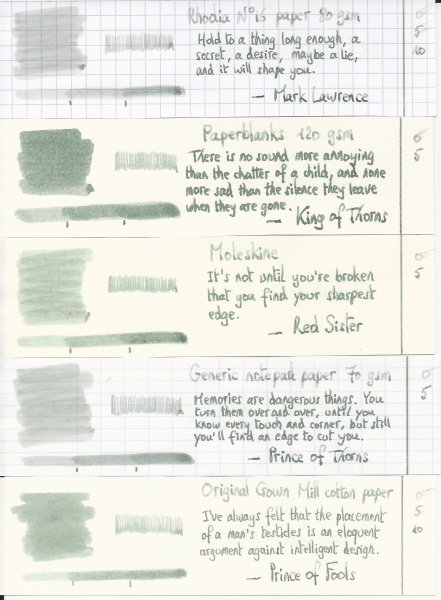 Rhodia N°16 paper 80 gsm
0
5
10
Hold to a thing long enough, a
secret, a desire, maybe a lie,
and it will shape you.
— Mark Lawrence
Paperblanks 120 gsm
0
5
There is no sound more annoying
than the chatter of a child, and none
more sad than the silence they leave
when they are gone.
— King of Thorns
Moleskine
0
5
It's not until you're broken
that you find your sharpest
edge.
— Red Sister
Generic notepad paper 70 gsm
0
5
Memories are dangerous things. You
turn them over and over, until you
know every touch and corner, but still
you'll find an edge to cut you.
— Prince of Thorns
Original Crown Mill cotton paper
0
5
10
I've always felt that the placement
of a man's testicles is an eloquent
argument against intelligent design.
— Prince of Fools